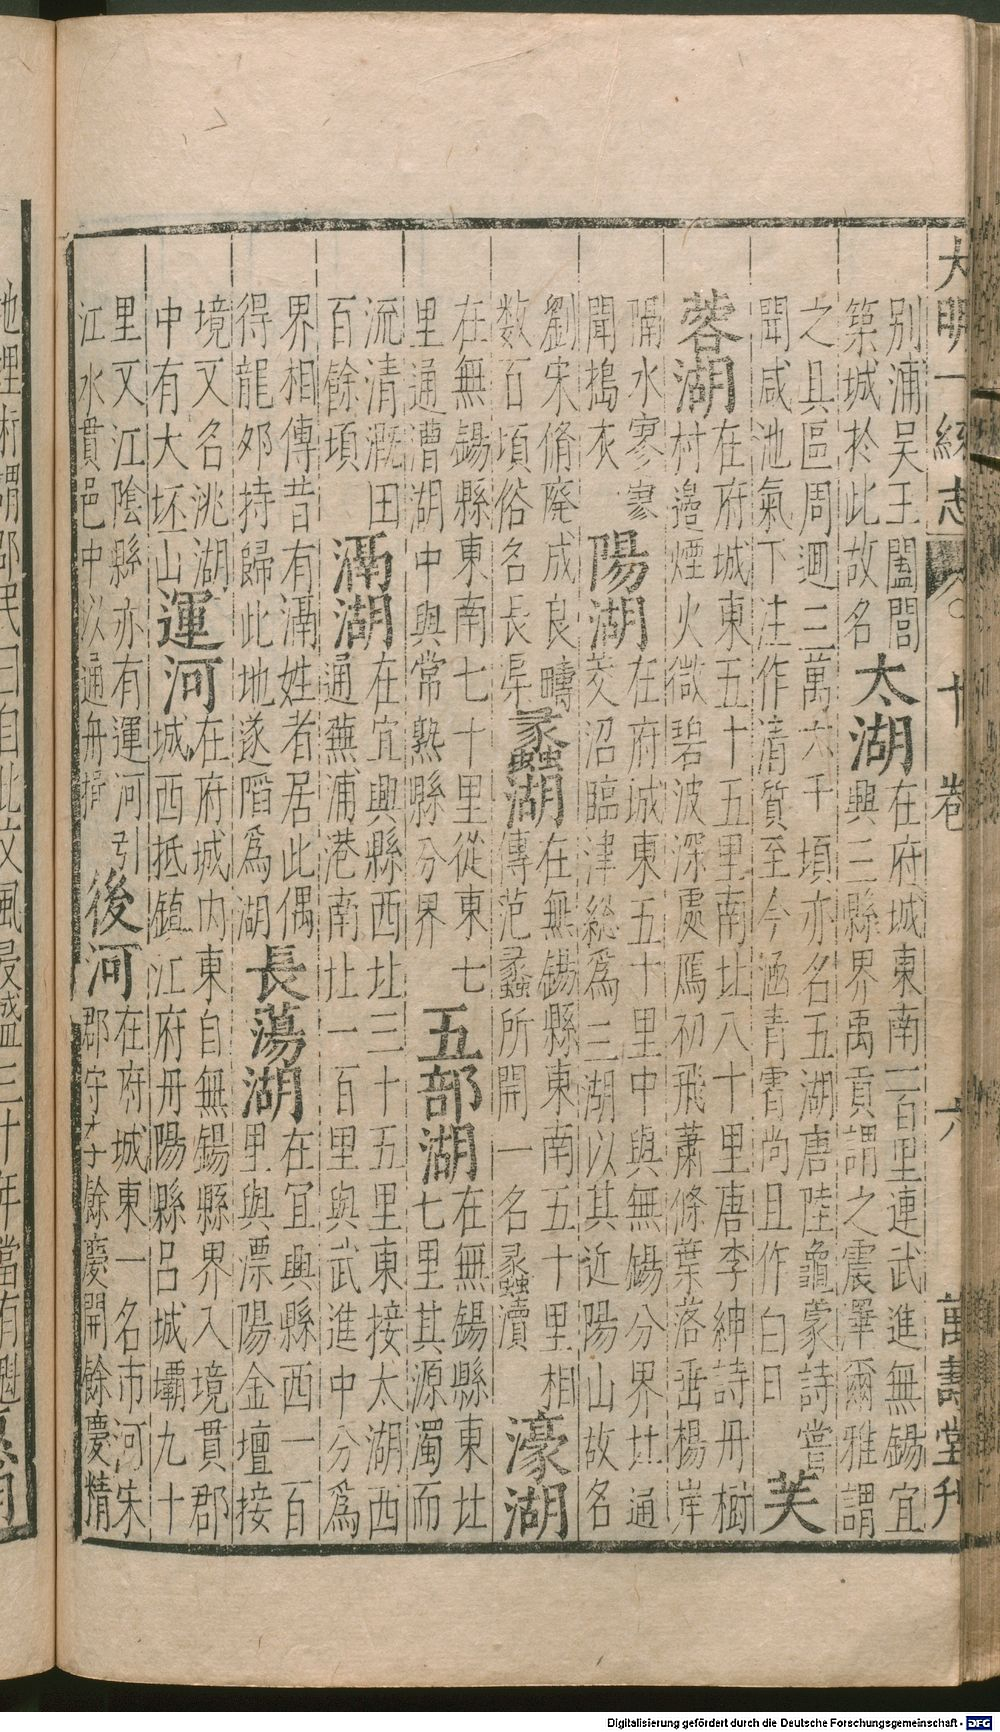 大明一統志 十卷 六 萬壽堂刊
別浦吳王闔閭
築城於此故名
太湖
在府城東南一百里連武進無錫宜
興三縣界禹貢謂之震澤爾雅謂
之具區周迴三萬六千頃亦名五湖唐陸龜蒙詩嘗
聞咸池氣下注作清質至今涵青霄尚且作白日
芙
蓉湖
在府城東五十五里南北八十里唐李紳詩丹樹
村邊煙火微碧波深處鴈初飛蕭條葉落垂楊岸
隔水寥寥
聞搗衣
陽湖
在府城東五十里中與無錫分界北通
茭沼臨津總為三湖以其近陽山故名
劉宋脩廢成良疇
數百頃俗名長
蠡湖
在無錫縣東南五十里相
傳范蠡所開一名蠡瀆
濠湖
在無錫縣東南七十里從東七
里通漕湖中與常熟縣分界
五部湖
在無錫縣東北
七里其源濁而
流清溉田
百餘頃
滆湖
在宜興縣西北三十五里東接太湖西
通蕪浦港南北一百里與武進中分為
界相傳昔有滆姓者居此偶
得龍卵持歸此地遂陷為湖
長蕩湖
在宜興縣西一百
里與漂陽金壇接
境又名洮湖
中有大坯山
運河
在府城内東自無錫縣界入境貫郡
城西抵鎮江府丹陽縣呂城壩九十
里又江陰縣亦有運河引
江水貫邑中以通舟揖
後河
在府城東一名市河宋
郡守李餘慶開餘慶精
地理術謂郡民曰自此文風寖盛三十年當有魁
Digitalisierung gefördert durch die Deutsche Forschungsgemeinschaft - DFG